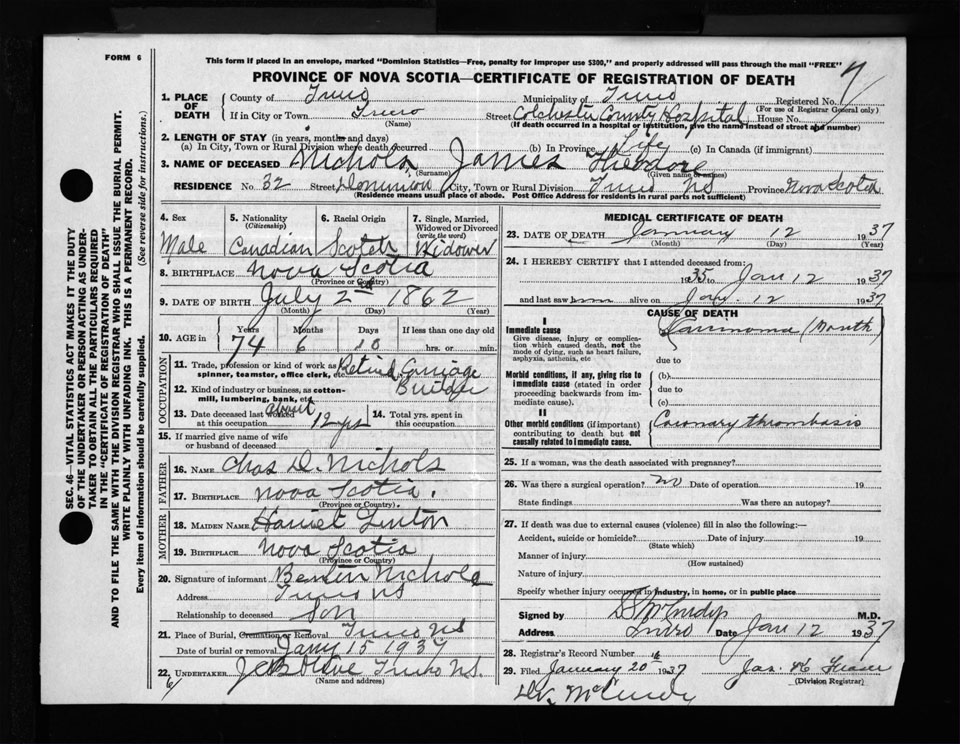 FORM 6
This form if placed in an envelope, marked "Dominion Statistics—Free, penalty for improper use $300," and properly addressed will pass through the mail "FREE"
PROVINCE OF NOVA SCOTIA—CERTIFICATE OF REGISTRATION OF DEATH
7
1. PLACE OF DEATH
County of Truro Municipality of Truro Registered No.
(For use of Registrar General only)
If in City or Town Truro Street Colchester County Hospital House No.
(Name) (If death occurred in a hospital or institution, give the name instead of street and number)
2. LENGTH OF STAY (in years, months and days)
(a) In City, Town or Rural Division where death occurred (b) In Province Life (c) In Canada (if immigrant)
3. NAME OF DECEASED Nichols, James Theodore
(Surname) (Given name or names)
RESIDENCE No. 32 Street Dominion City, Town or Rural Division Truro NS Province Nova Scotia
(Residence means usual place of abode. Post Office Address for residents in rural parts not sufficient)
4. Sex
Male
5. Nationality (Citizenship)
Canadian
6. Racial Origin
Scotch
7. Single, Married, Widowed or Divorced (write the word)
Widower
8. BIRTHPLACE Nova Scotia
(Province or Country)
9. DATE OF BIRTH July 2nd 1862
(Month) (Day) (Year)
10. AGE in Years Months Days If less than one day old
74 6 10 hrs. or min.
OCCUPATION
11. Trade, profession or kind of work as spinner, teamster, office clerk, etc. Retired Carriage
12. Kind of industry or business, as cotton-mill, lumbering, bank, etc. Builder
13. Date deceased last worked at this occupation about 12 yrs
14. Total yrs. spent in this occupation
15. If married give name of wife or husband of deceased
FATHER
16. NAME Chas D. Nichols
17. BIRTHPLACE Nova Scotia.
(Province or Country)
MOTHER
18. MAIDEN NAME Harriet Linton
19. BIRTHPLACE Nova Scotia
(Province or Country)
20. Signature of informant Nichols
Address Truro NS
Relationship to deceased Son
21. Place of Burial, Cremation or Removal Truro NS
Date of burial or removal Jany 15 1937
22. UNDERTAKER Truro N.S.
(Name and address)
6
MEDICAL CERTIFICATE OF DEATH
23. DATE OF DEATH January 12 1937
(Month) (Day) (Year)
24. I HEREBY CERTIFY that I attended deceased from:
1935 to Jan 12 1937
and last saw him alive on Jan. 12 1937
CAUSE OF DEATH
I
Immediate cause
Give disease, injury or complication which caused death, not the mode of dying, such as heart failure, asphyxia, asthenia, etc
Carcinoma (Mouth)
due to
Morbid conditions, if any, giving rise to immediate cause (stated in order proceeding backwards from immediate cause).
(b)
due to
(c)
II
Other morbid conditions (if important) contributing to death but not causally related to immediate cause.
Coronary thrombosis
25. If a woman, was the death associated with pregnancy?
26. Was there a surgical operation? no Date of operation 19
State findings Was there an autopsy?
27. If death was due to external causes (violence) fill in also the following:—
Accident, suicide or homicide? Date of injury 19
(State which)
Manner of injury
(How sustained)
Nature of injury
Specify whether injury occurred in industry, in home, or in public place
Signed by McCurdy M.D.
Address Truro Date Jan 12 1937
28. Registrar's Record Number
29. Filed January 20 1937 Jas. Fraser
(Division Registrar)
McCurdy
SEC. 46—VITAL STATISTICS ACT MAKES IT THE DUTY
OF THE UNDERTAKER OR PERSON ACTING AS UNDER-
TAKER TO OBTAIN ALL THE PARTICULARS REQUIRED
IN THE "CERTIFICATE OF REGISTRATION OF DEATH"
AND TO FILE THE SAME WITH THE DIVISION REGISTRAR WHO SHALL ISSUE THE BURIAL PERMIT.
WRITE PLAINLY WITH UNFADING INK. THIS IS A PERMANENT RECORD.
Every item of information should be carefully supplied. (See reverse side for instructions.)